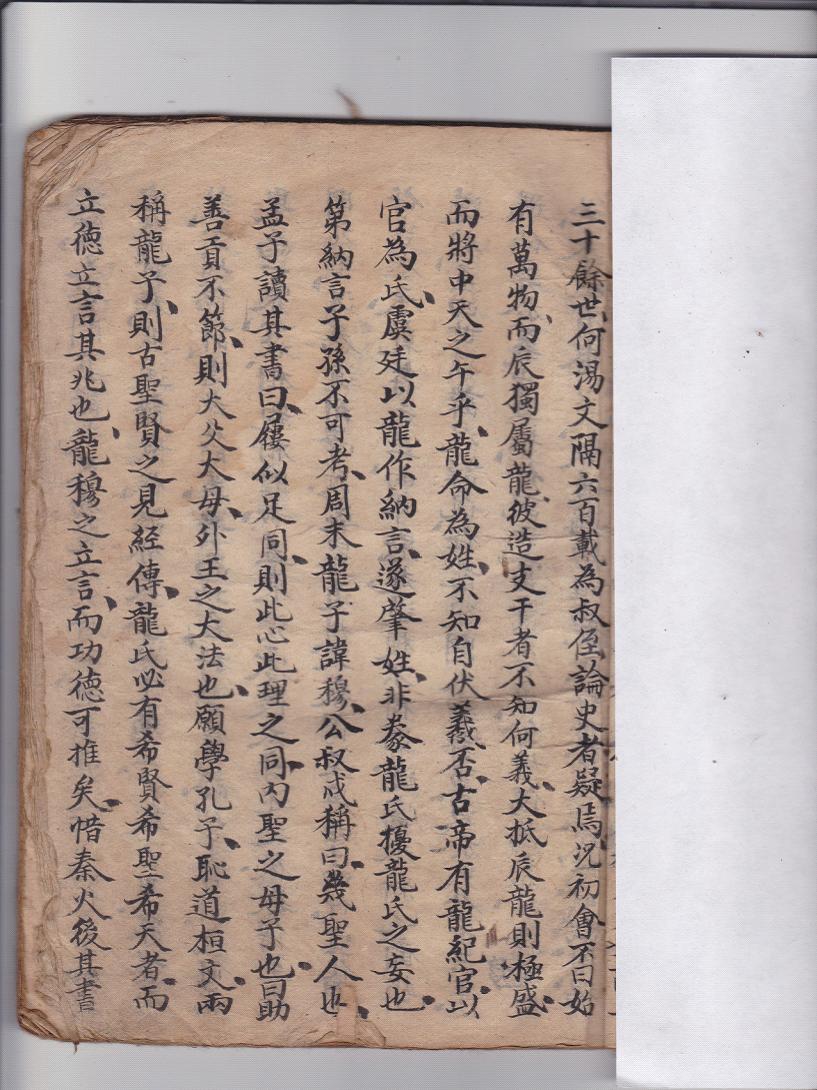 三十餘世、何湯文隔六百載為叔侄、論史者疑焉、況初會不曰始
有萬物、而辰獨屬龍、彼造支干者不知何義、大抵辰龍則極盛、
而將中天之午乎、龍命為姓、不知自伏羲否、古帝有龍紀官、以
官為氏、虞廷以龍作納言、遂肇姓、非豢龍氏擾龍氏之妄也、
第納言子孫不可考、周末龍子諱穆、公叔戍稱曰、幾聖人也、
孟子讀其書曰、屨似足同、則此心此理之同、內聖之母子也、曰助
善貢不節、則大父大母、外王之大法也、願學孔子、恥道桓文、兩
稱龍子、則古聖賢之見經傳、龍氏必有希賢希聖希天者、而
立德立言其兆也、龍穆之立言、而功德可推矣、惜秦火後其書